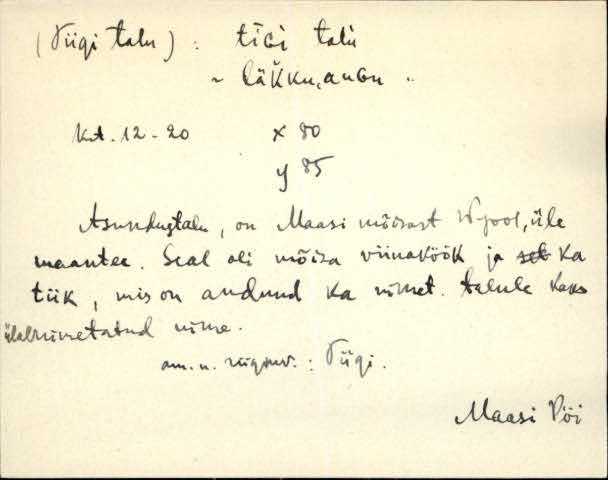 (Tiigi talu) : tiGi talu
~ läkku, auGu ..
krt. 12-20 x 80
y 85
Asundustalu, on Maasi mõisast W-pool, üle
maantee. Seal oli mõisa viinaköök ja ka
tiik, mis on andnud ka nimet. talule kaks
ülalnimetatud nime.
am. n. : Tiigi.
Maasi Pöi